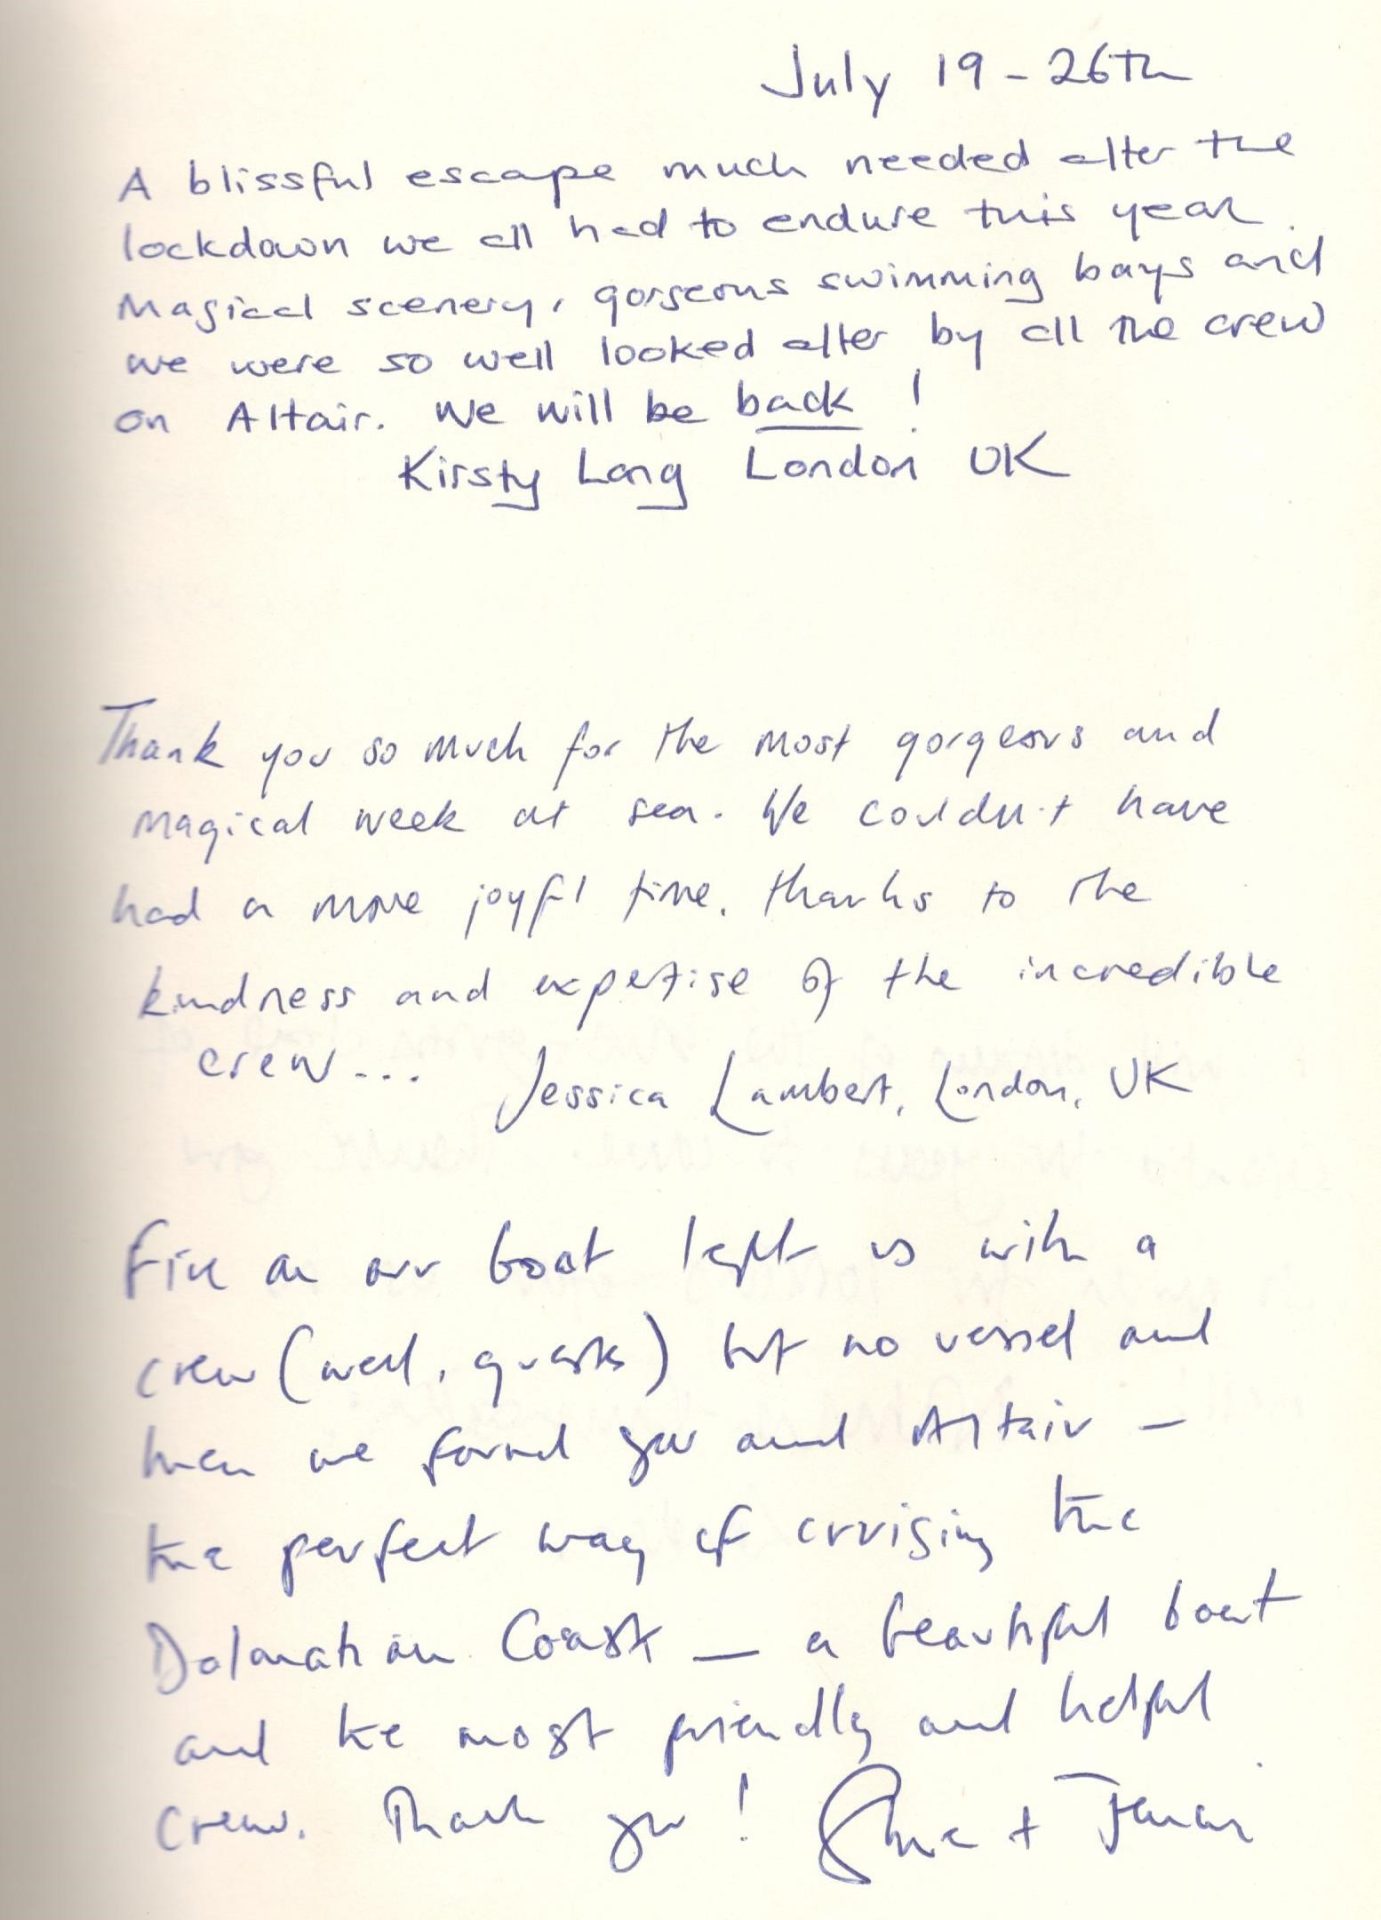 July 19 - 26th
A blissful escape much needed after the
lockdown we all had to endure this year.
Magical scenery, gorgeous swimming bays and
we were so well looked after by all the crew
on Altair. We will be back !
Kirsty Lang London UK
Thank you so much for the most gorgeous and
magical week at sea. We couldn't have
had a more joyful time, thanks to the
kindness and expertise of the incredible
crew...
Jessica Lambert, London, UK
Fire on our boat left us with a
crew (well, guests) but no vessel and
then we found you and Altair -
the perfect way of cruising the
Dalmatian Coast - a beautiful boat
and the most friendly and helpful
crew. Thank you !